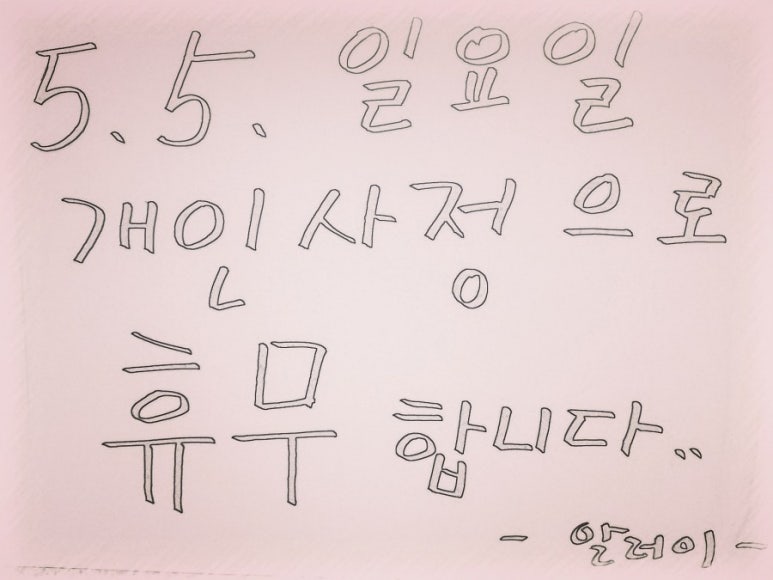 5.5. 일요일
개인사정으로
휴무 합니다..
- 알레이 -